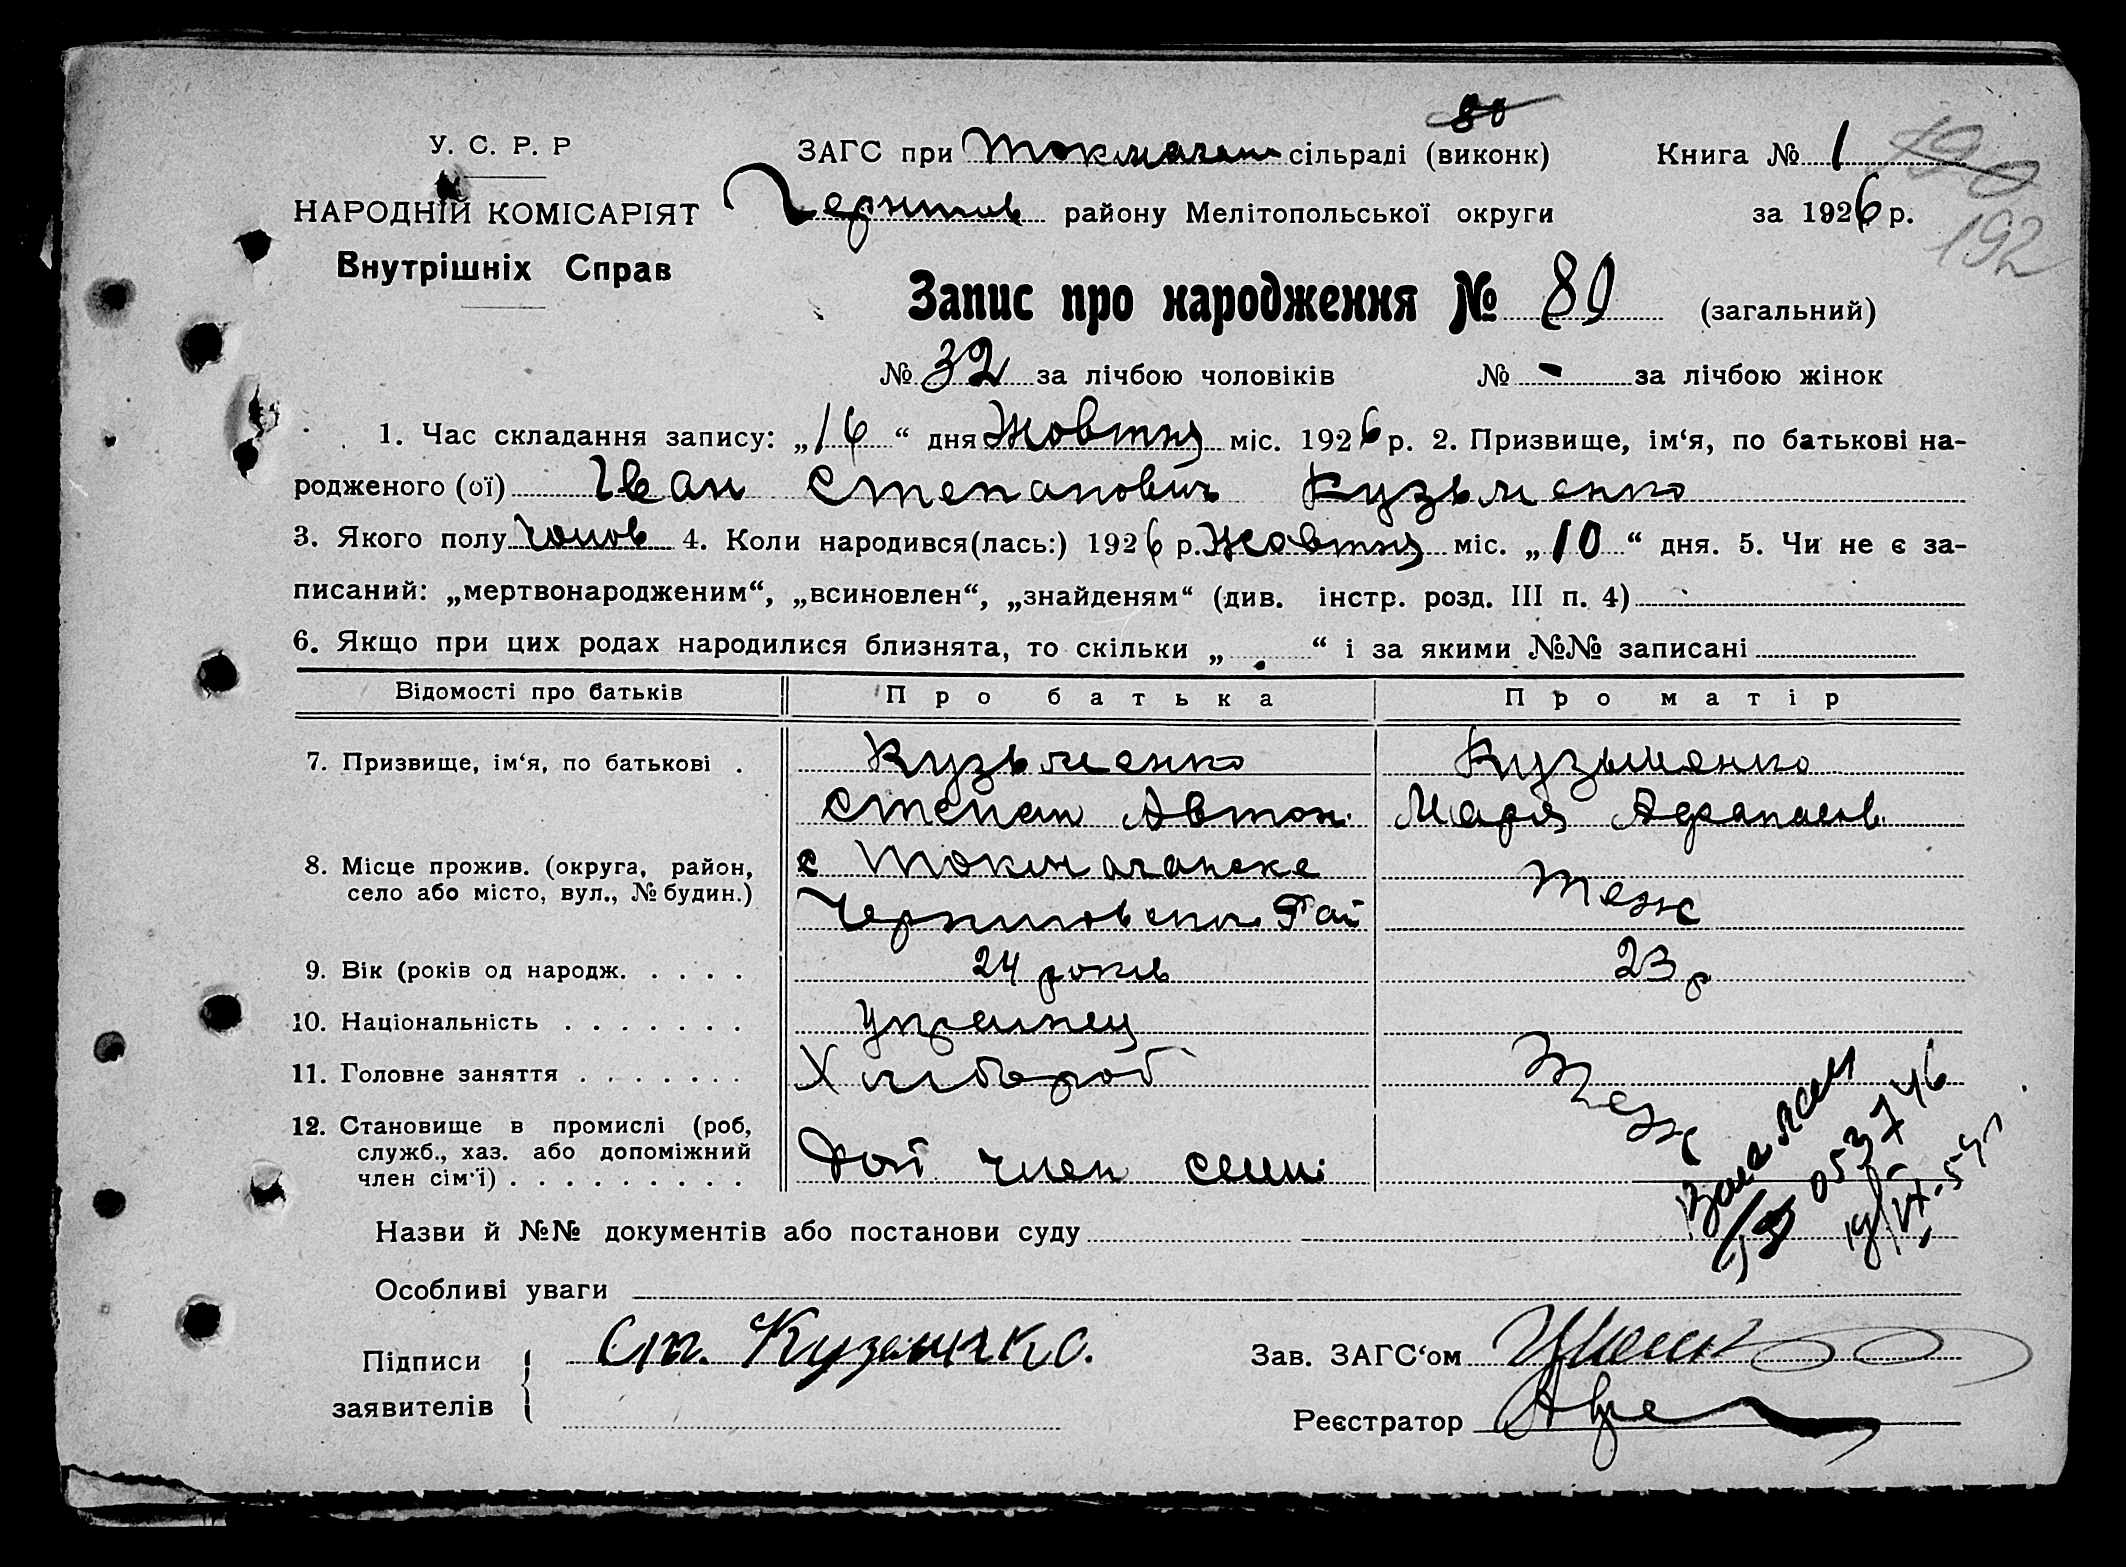 80
У. С. Р. Р
ЗАГС при Токмачан сільраді (виконк)
Книга № 1
190
НАРОДНІЙ КОМІСАРІЯТ
району Мелітопольської округи
за 1926 р.
192
Внутрішніх Справ
Запис про народження № 89 (загальний)
№ 32 за лічбою чоловіків № - за лічбою жінок
1. Час складання запису: „16“ дня Жовтня міс. 1926 р. 2. Призвище, ім‘я, по батькові на-
родженого (ої) Іван Степанович Кузьменко
3. Якого полу чолов 4. Коли народився(лась:) 1926 р. Жовтня міс. „10“ дня. 5. Чи не є за-
писаний: „мертвонародженим“, „всиновлен“, „знайденям“ (див. інстр. розд. III п. 4)
6. Якщо при цих родах народилися близнята, то скільки „ “ і за якими №№ записані
Відомості про батьків Про батька Про матір
7. Призвище, ім‘я, по батькові . Кузьменко Кузьменко
Степан Автон. Мария Афанасів.
8. Місце прожив. (округа, район, с Токмачанске теж
село або місто, вул., № будин.) Рай
9. Вік (років од народж. . . . . 24 років 23 р
10. Національність . . . . . . . українец
11. Головне заняття . . . . . . . Хлібороб теж
12. Становище в промислі (роб,
служб., хаз. або допоміжний
член сім‘ї) . . . . . . . . . член семи
053746
Назви й №№ документів або постанови суду
Особливі уваги
Підписи Ст. Кузьменко.
Зав. ЗАГС‘ом
заявителів
Реєстратор